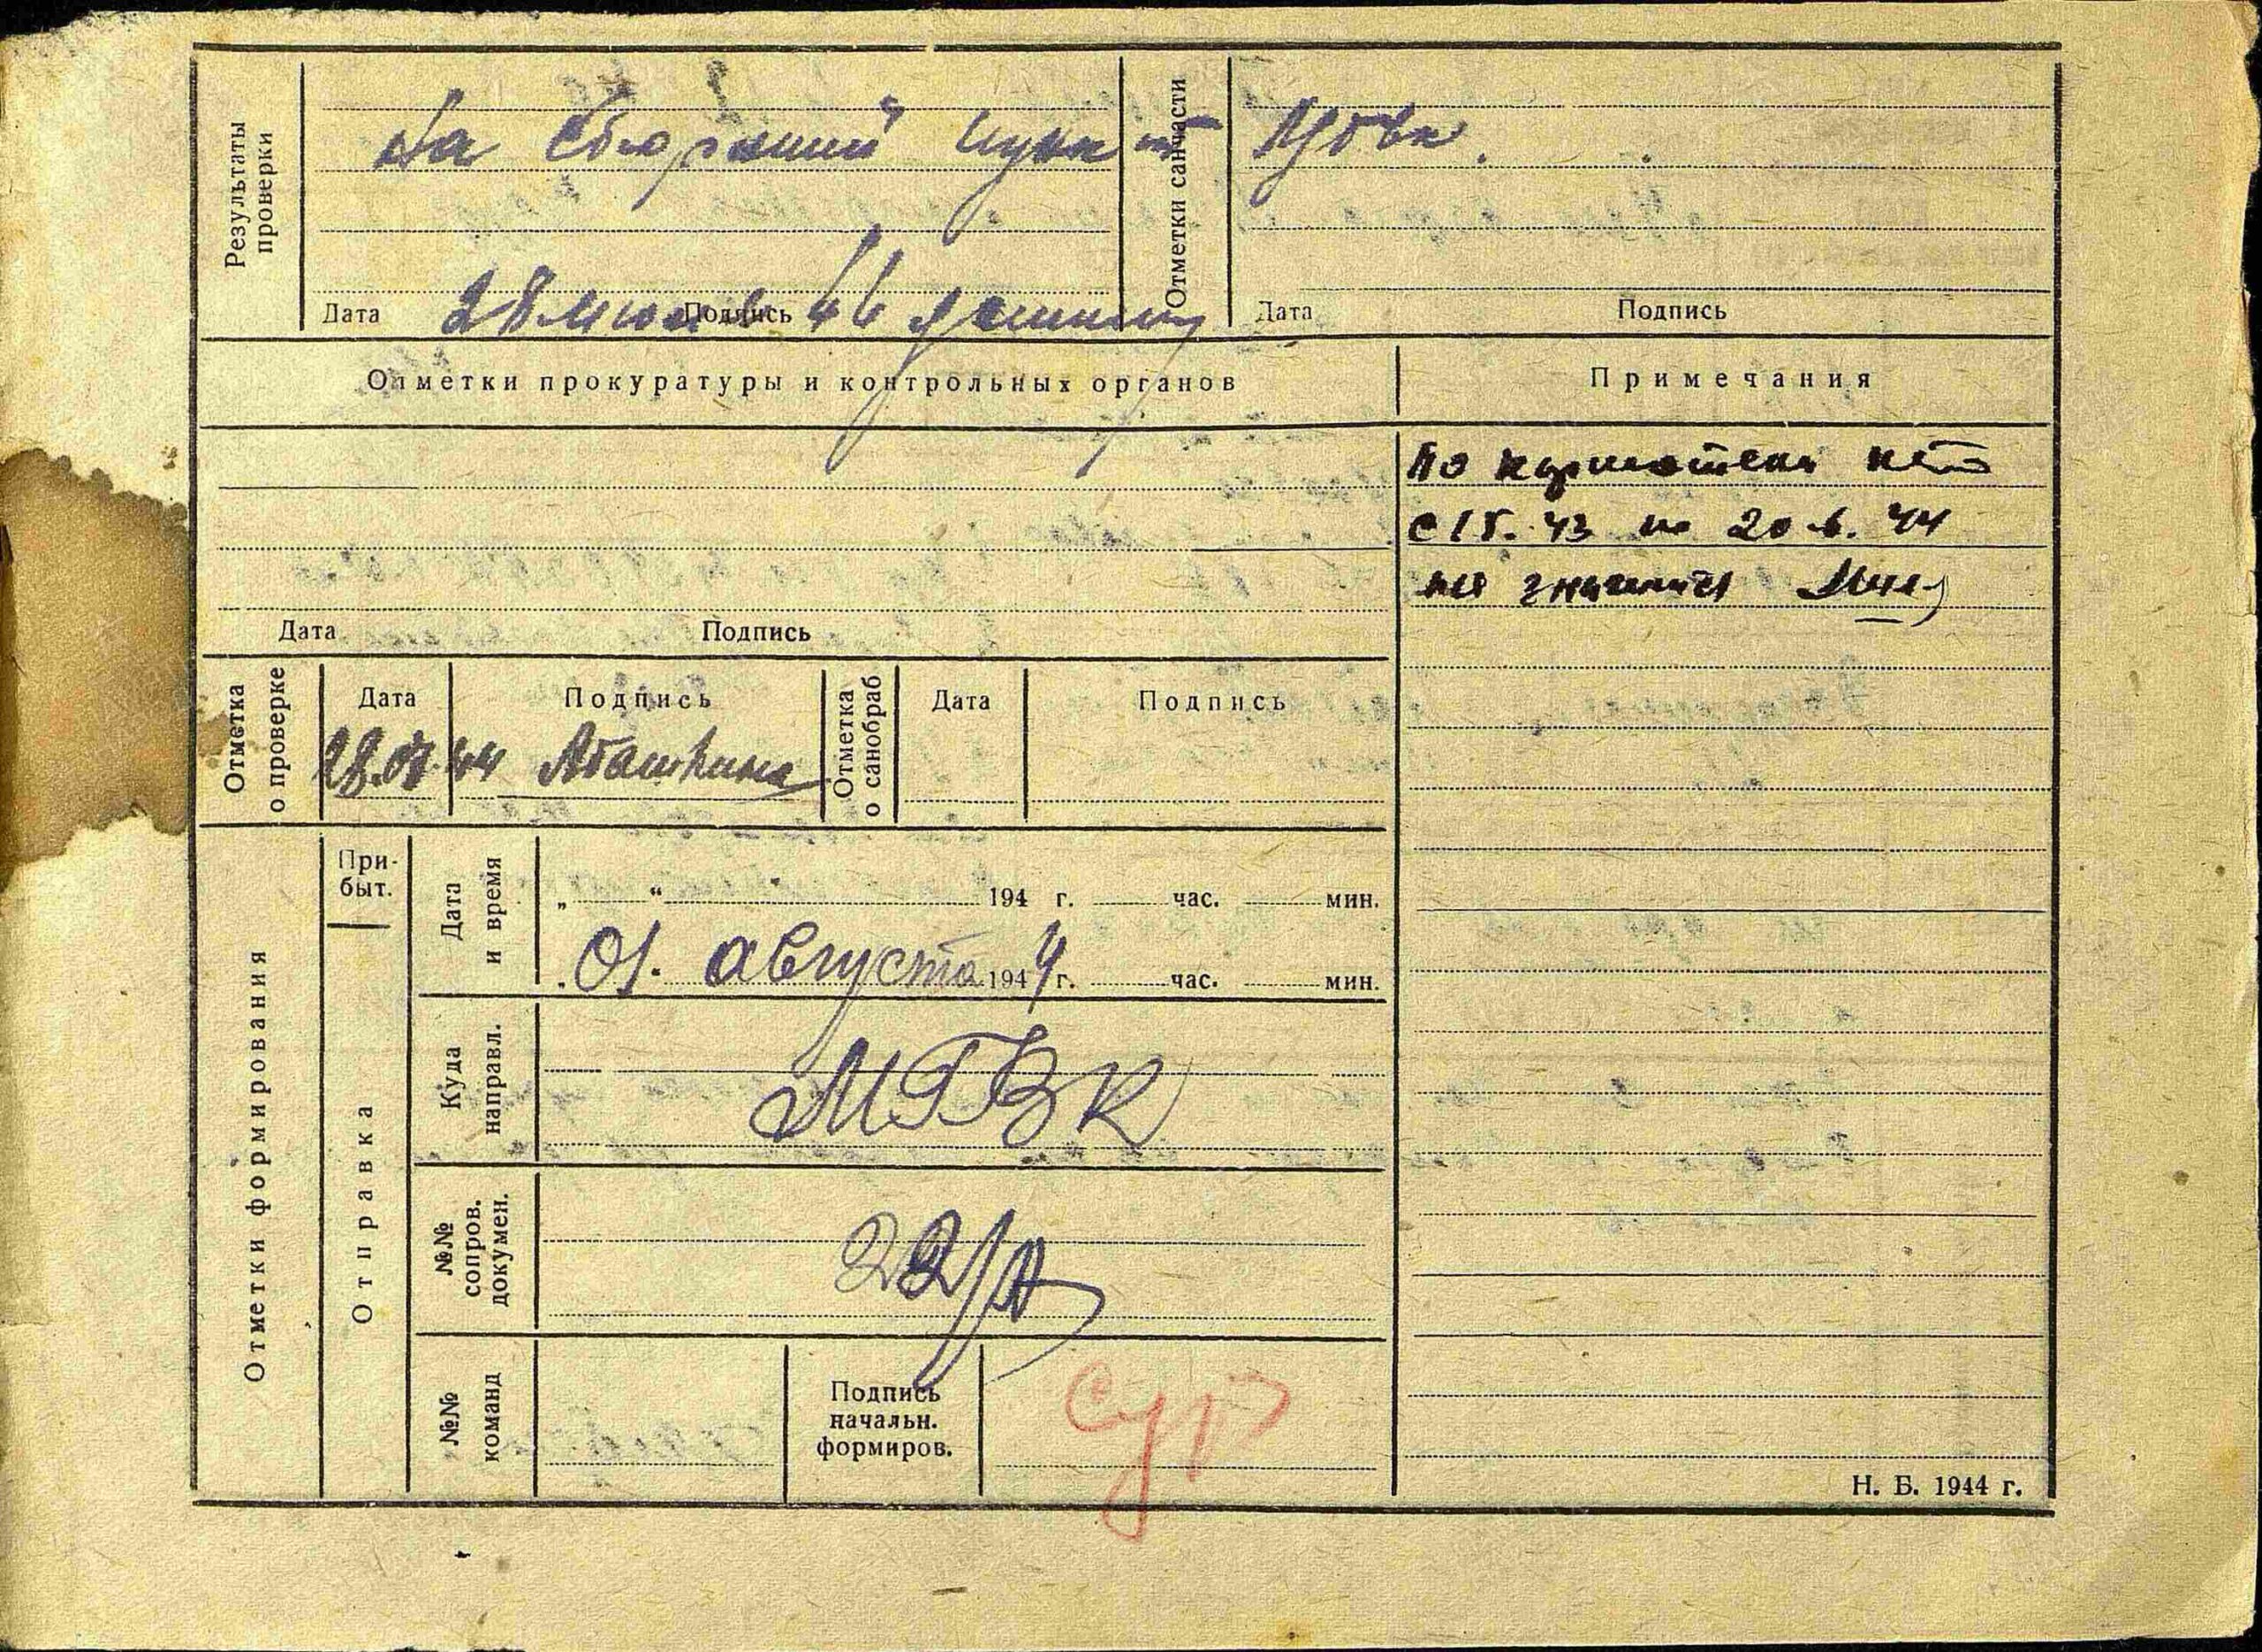 Результаты проверки
На сборный пункт
Отметки санчасти
Дата 28 июля 44 Подпись
Дата Подпись
Отметки прокуратуры и контрольных органов
Примечания
По картотеки нет
с 15. 43 по 20.6. 44
не значится
Дата Подпись
Отметка о проверке
Дата Подпись
28.07.44 Абашкина
Отметка о санобраб
Дата Подпись
Отметки формирования
При-
быт.
Отправка
Дата и время
„ “ 194 г. час. мин.
01. августа 1944 г. час. мин.
Куда направл.
МГВК
№№ сопров. докумен.
№№ команд
Подпись
начальн.
формиров.
Н. Б. 1944 г.